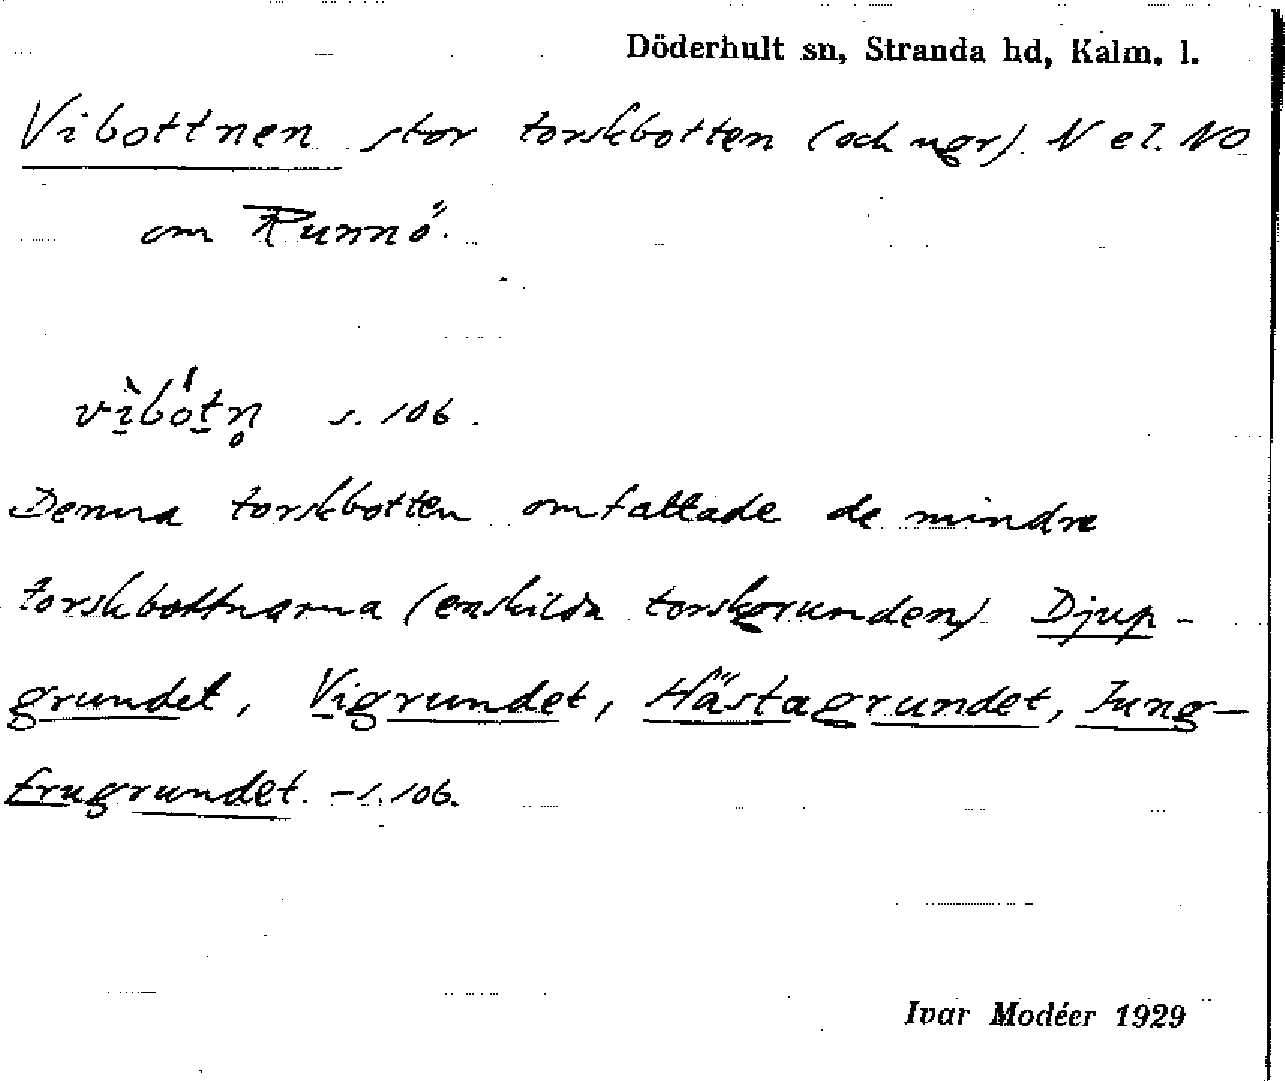 Döderhult sn, Stranda hd, Kalm. l.
Vibottnen stor torskbotten (och ngr) N el. NO
om Runnö.
vìbótn̥ s. 106.
Denna torskbotten omfattade de mindre
torskbottnarna (enskilda torskgrunden) Djup-
grundet, Vigrundet, Hästagrundet, Jung-
frugrundet. - s. 106.
Ivar Modéer 1929